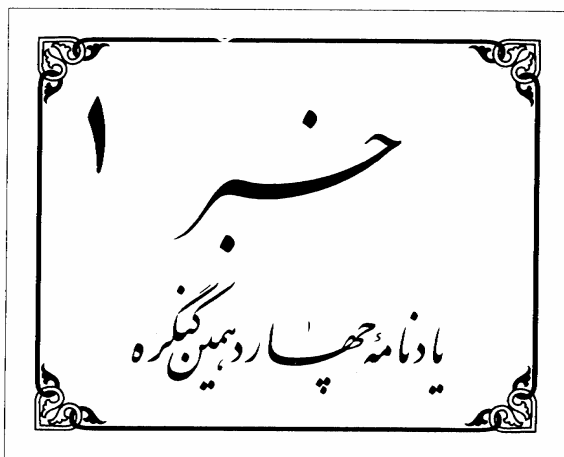 ۱
خبر
یادنامهٔ چهاردهمین کنگره